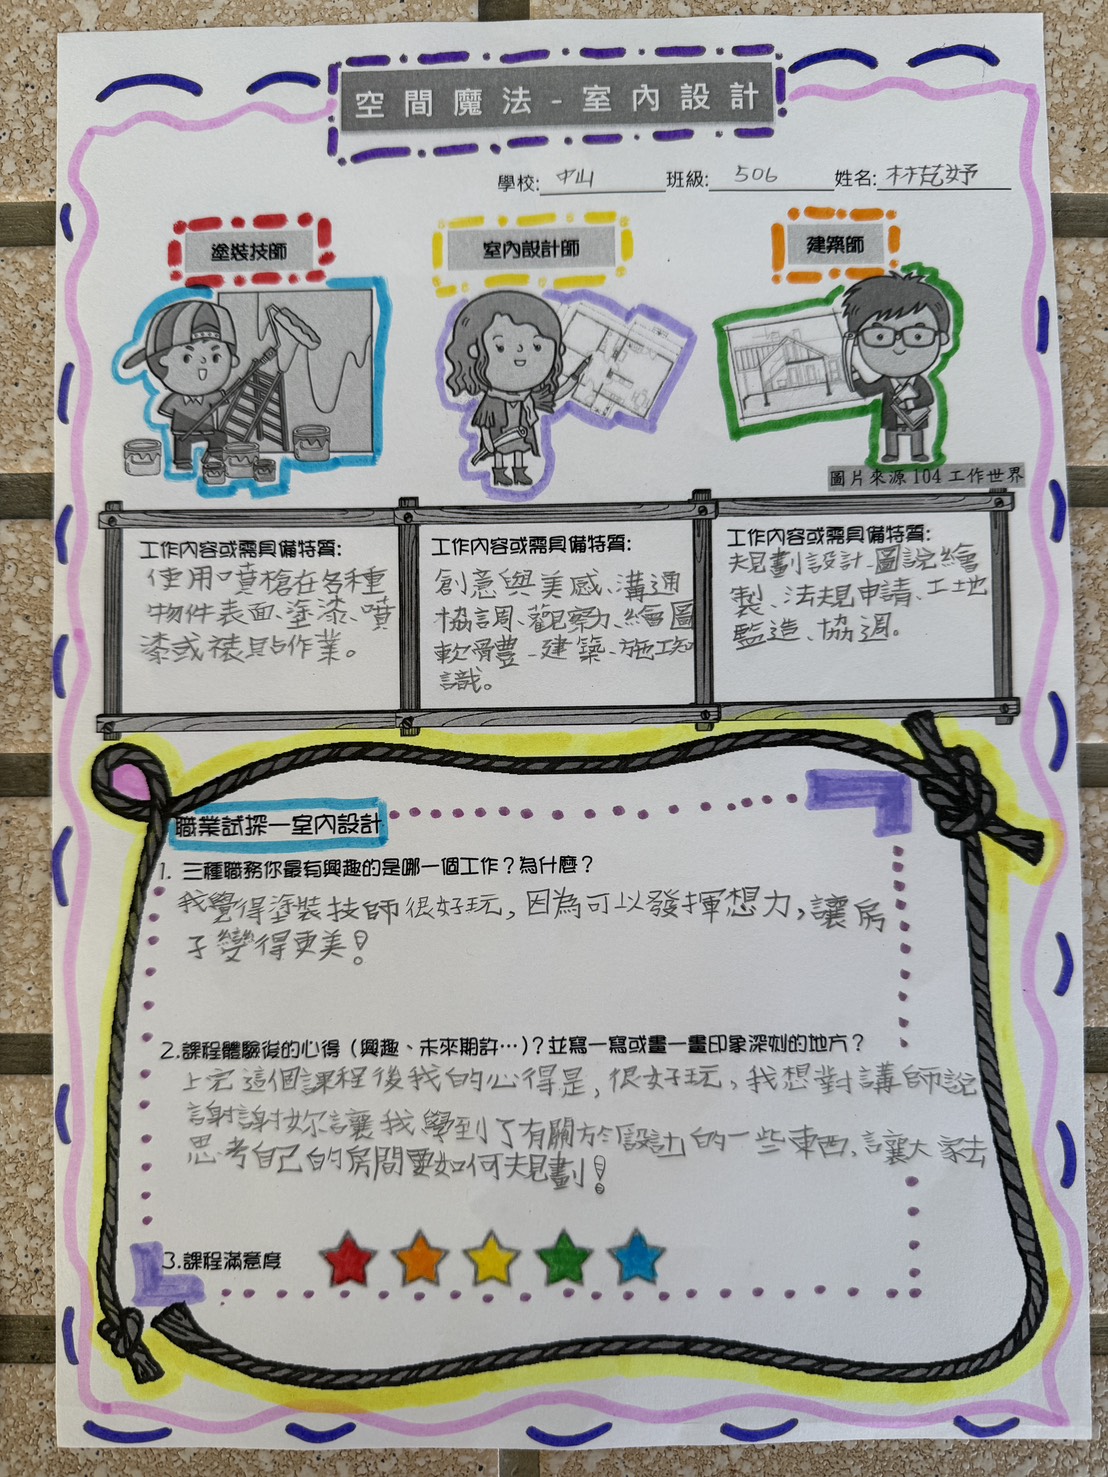 空間魔法-室內設計
學校: 中山 班級: 506 姓名: 林芃妤
塗裝技師
室內設計師
建築師
圖片來源 104 工作世界
工作內容或需具備特質:
使用噴槍在各種
物件表面、塗漆、噴
漆或裱貼作業。
工作內容或需具備特質:
創意與美感、溝通
協調、觀察力、繪圖
軟體、建築、施工知
識。
工作內容或需具備特質:
規劃設計、圖說繪
製、法規申請、工地
監造、協調。
職業試探一室內設計
1. 三種職務你最有興趣的是哪一個工作？為什麼？
我覺得塗裝技師很好玩，因為可以發揮想力，讓房
子變得更美！
2.課程體驗後的心得（興趣、未來期許…）？並寫一寫或畫一畫印象深刻的地方？
上完這個課程後我的心得是，很好玩，我想對講師說
謝謝妳讓我學到了有關於設計的一些東西，讓大家去
思考自己的房間要如何規劃！
3.課程滿意度